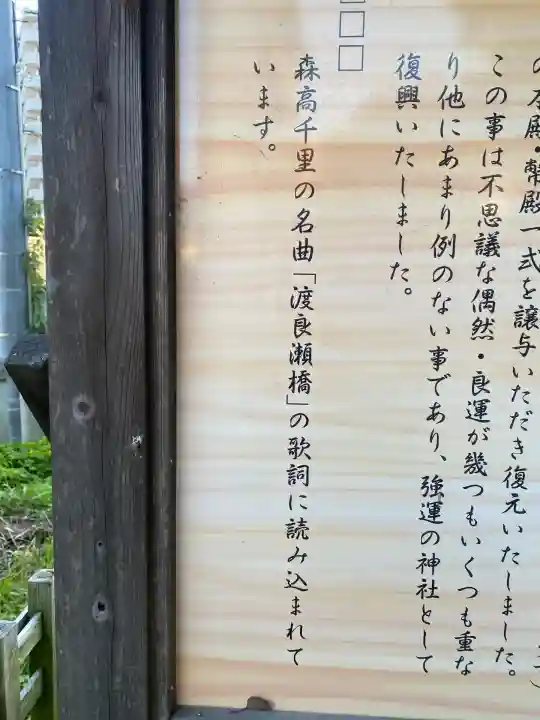 の本殿・幣殿一式を譲与いただき復元いたしました。
この事は不思議な偶然・良運が幾つもいくつも重な
り他にあまり例のない事であり、強運の神社として
復興いたしました。
□□□
森高千里の名曲「渡良瀬橋」の歌詞に読み込まれて
います。